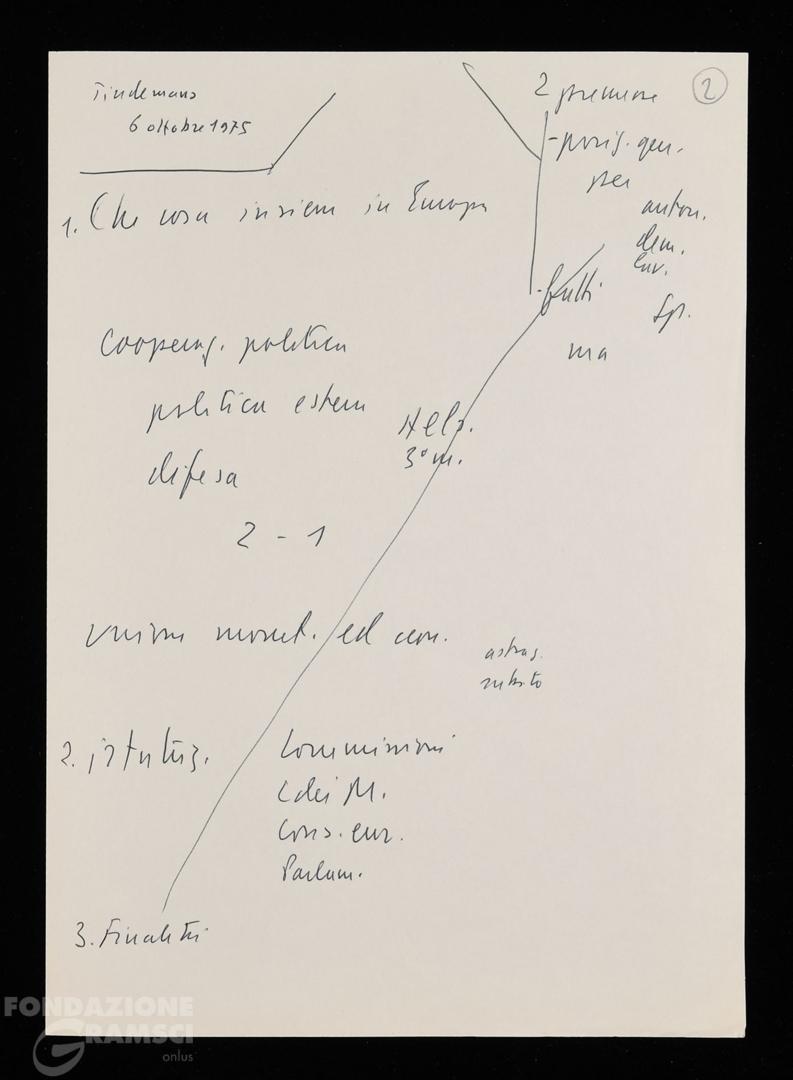 Tindemans
6 ottobre 1975
2 premesse
2
- posiz. gen.
per
auton.
dem.
eur.
- frutti
Sp.
ma
1. Che cosa insieme in Europa
Cooperaz. politica
politica estera
Hels.
3° m.
difesa
2 - 1
unione monet. ed econ.
astraz.
subito
2. istituz.
Commissioni
C dei M.
Cons. eur.
Parlam.
3. Finalità
FONDAZIONE
GRAMSCI
onlus